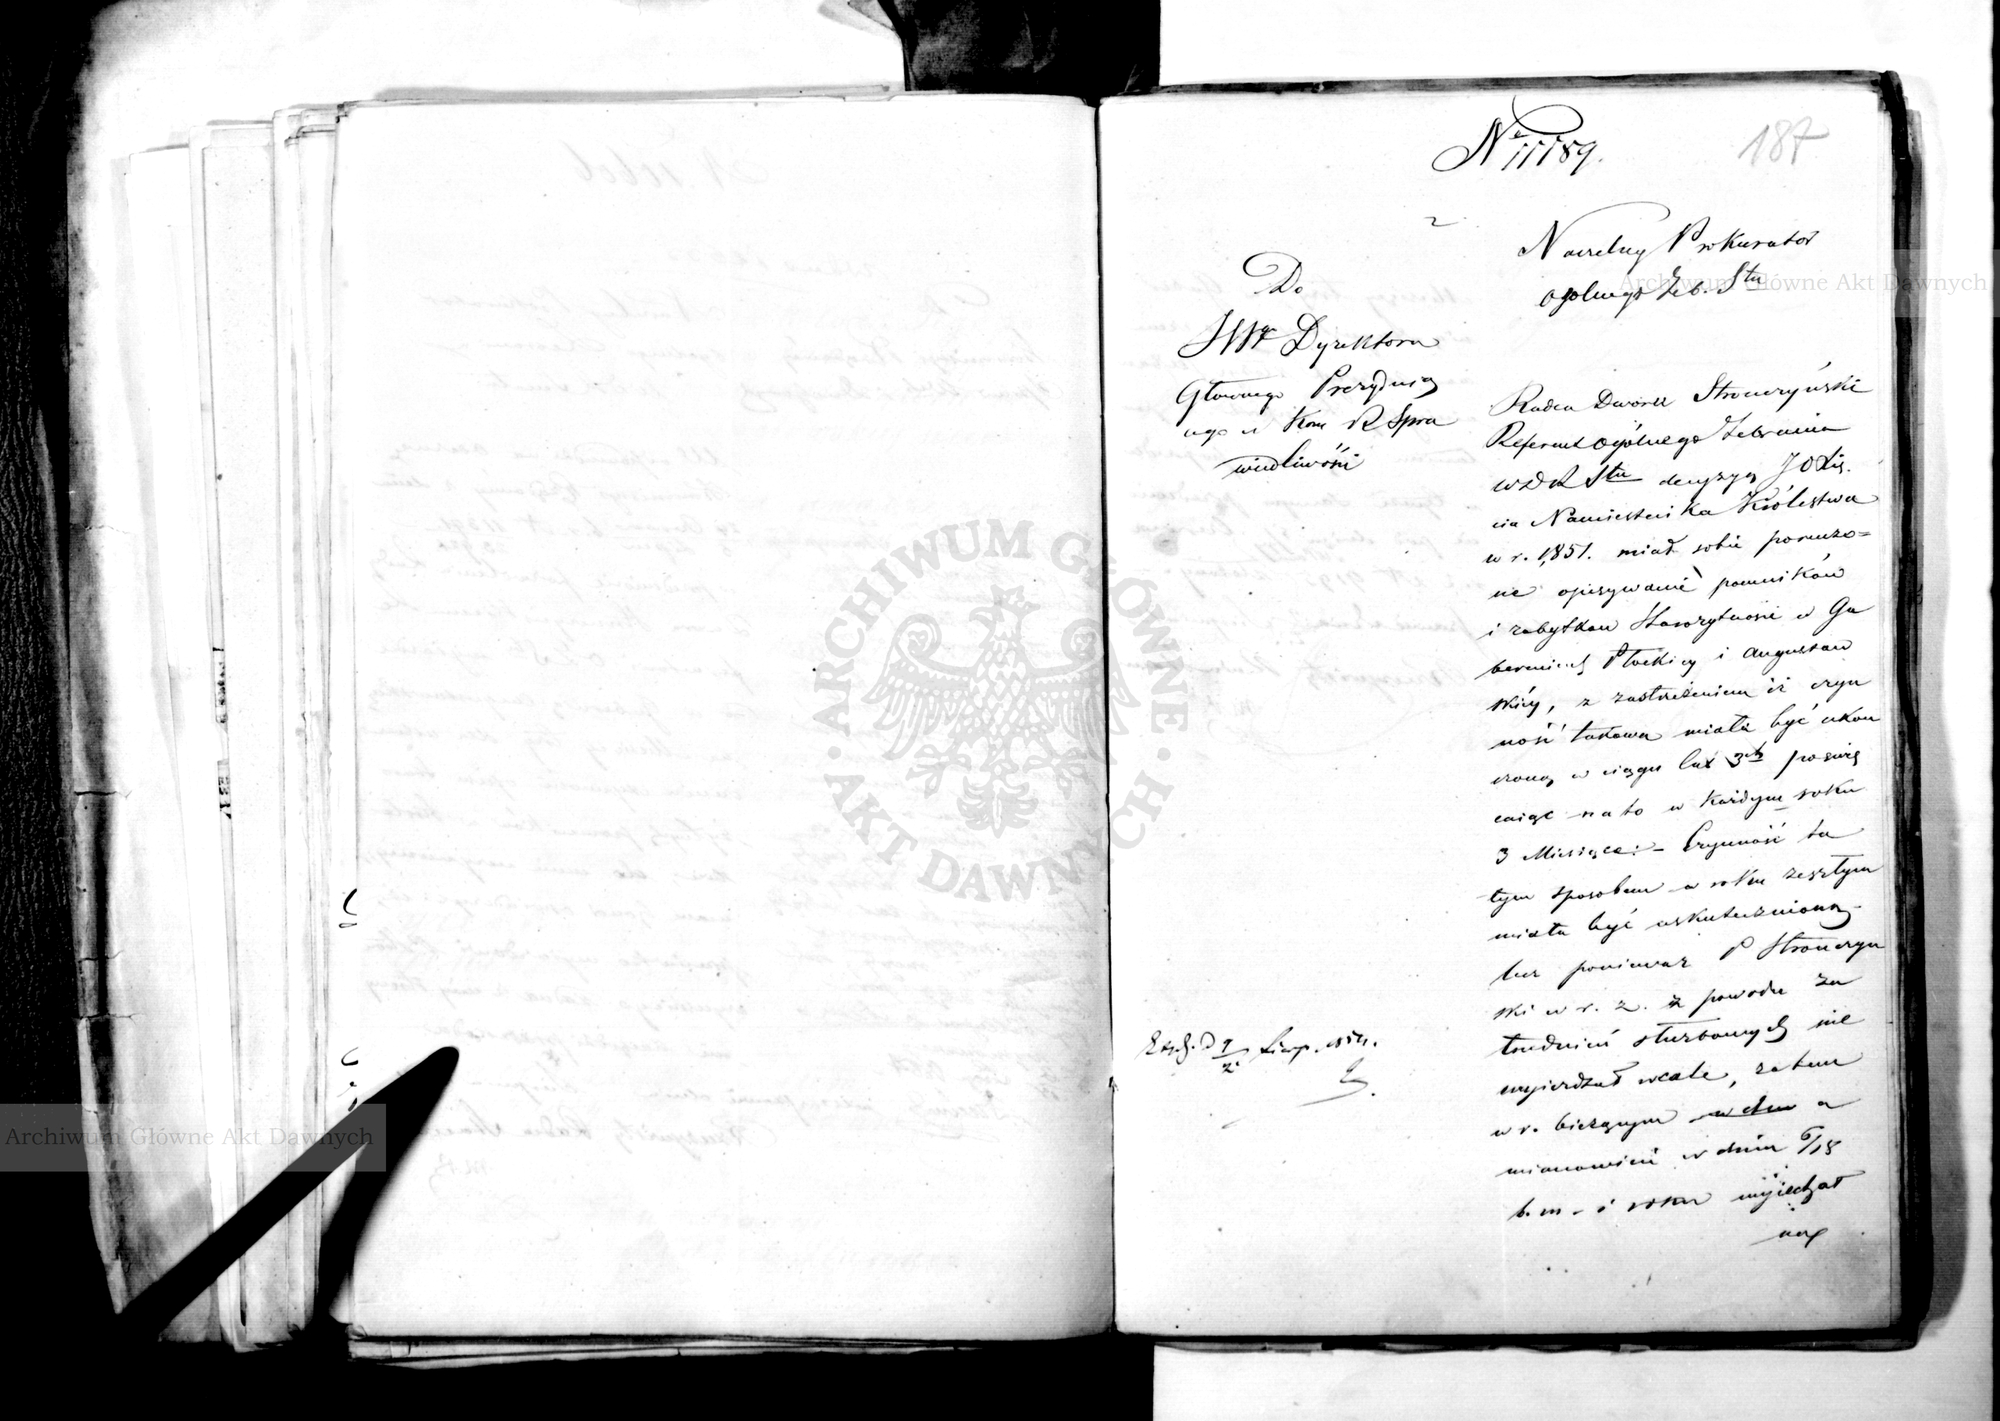 № 11189.
187
Naczelny Prokurator
ogolnego Zeb. Stu
Do
JWgo Dyrektora
Głownego Prezydują
cego w Kom R Spra
wiedliwości
Radca Dworu Stronczyński
Referent ogólnego Zebrania
WDR Stu decyzyą JO Xię
cia Namiestnika Królestwa
w r. 1851. miał sobie poruczo=
ne opisywanie pomników
i zabytków Starożytności w Gu
berniach Płockiej i Augustow
skiej, z zastrzeżeniem iż czyn
ność takowa miała być ukoń
czoną w ciągu lat 3ch poświę
cając na to w każdym roku
3 Miesiące. – Czynność ta
tym sposobem w roku zeszłym
miała być uskutecznioną –
lecz ponieważ P Stronczyn
ski w r. z. z powodu za
trudnień służbowych nie
wyjeżdżał wcale, zatem
w r. bieżącym w dniu a
mianowicie w dniu 6/18
b. m. i roku wyjechał
Exp. D 9/21 Sierp. 1854.
Archiwum Główne Akt Dawnych
Archiwum Główne Akt Dawnych
ARCHIWUM GŁÓWNE
AKT DAWNYCH